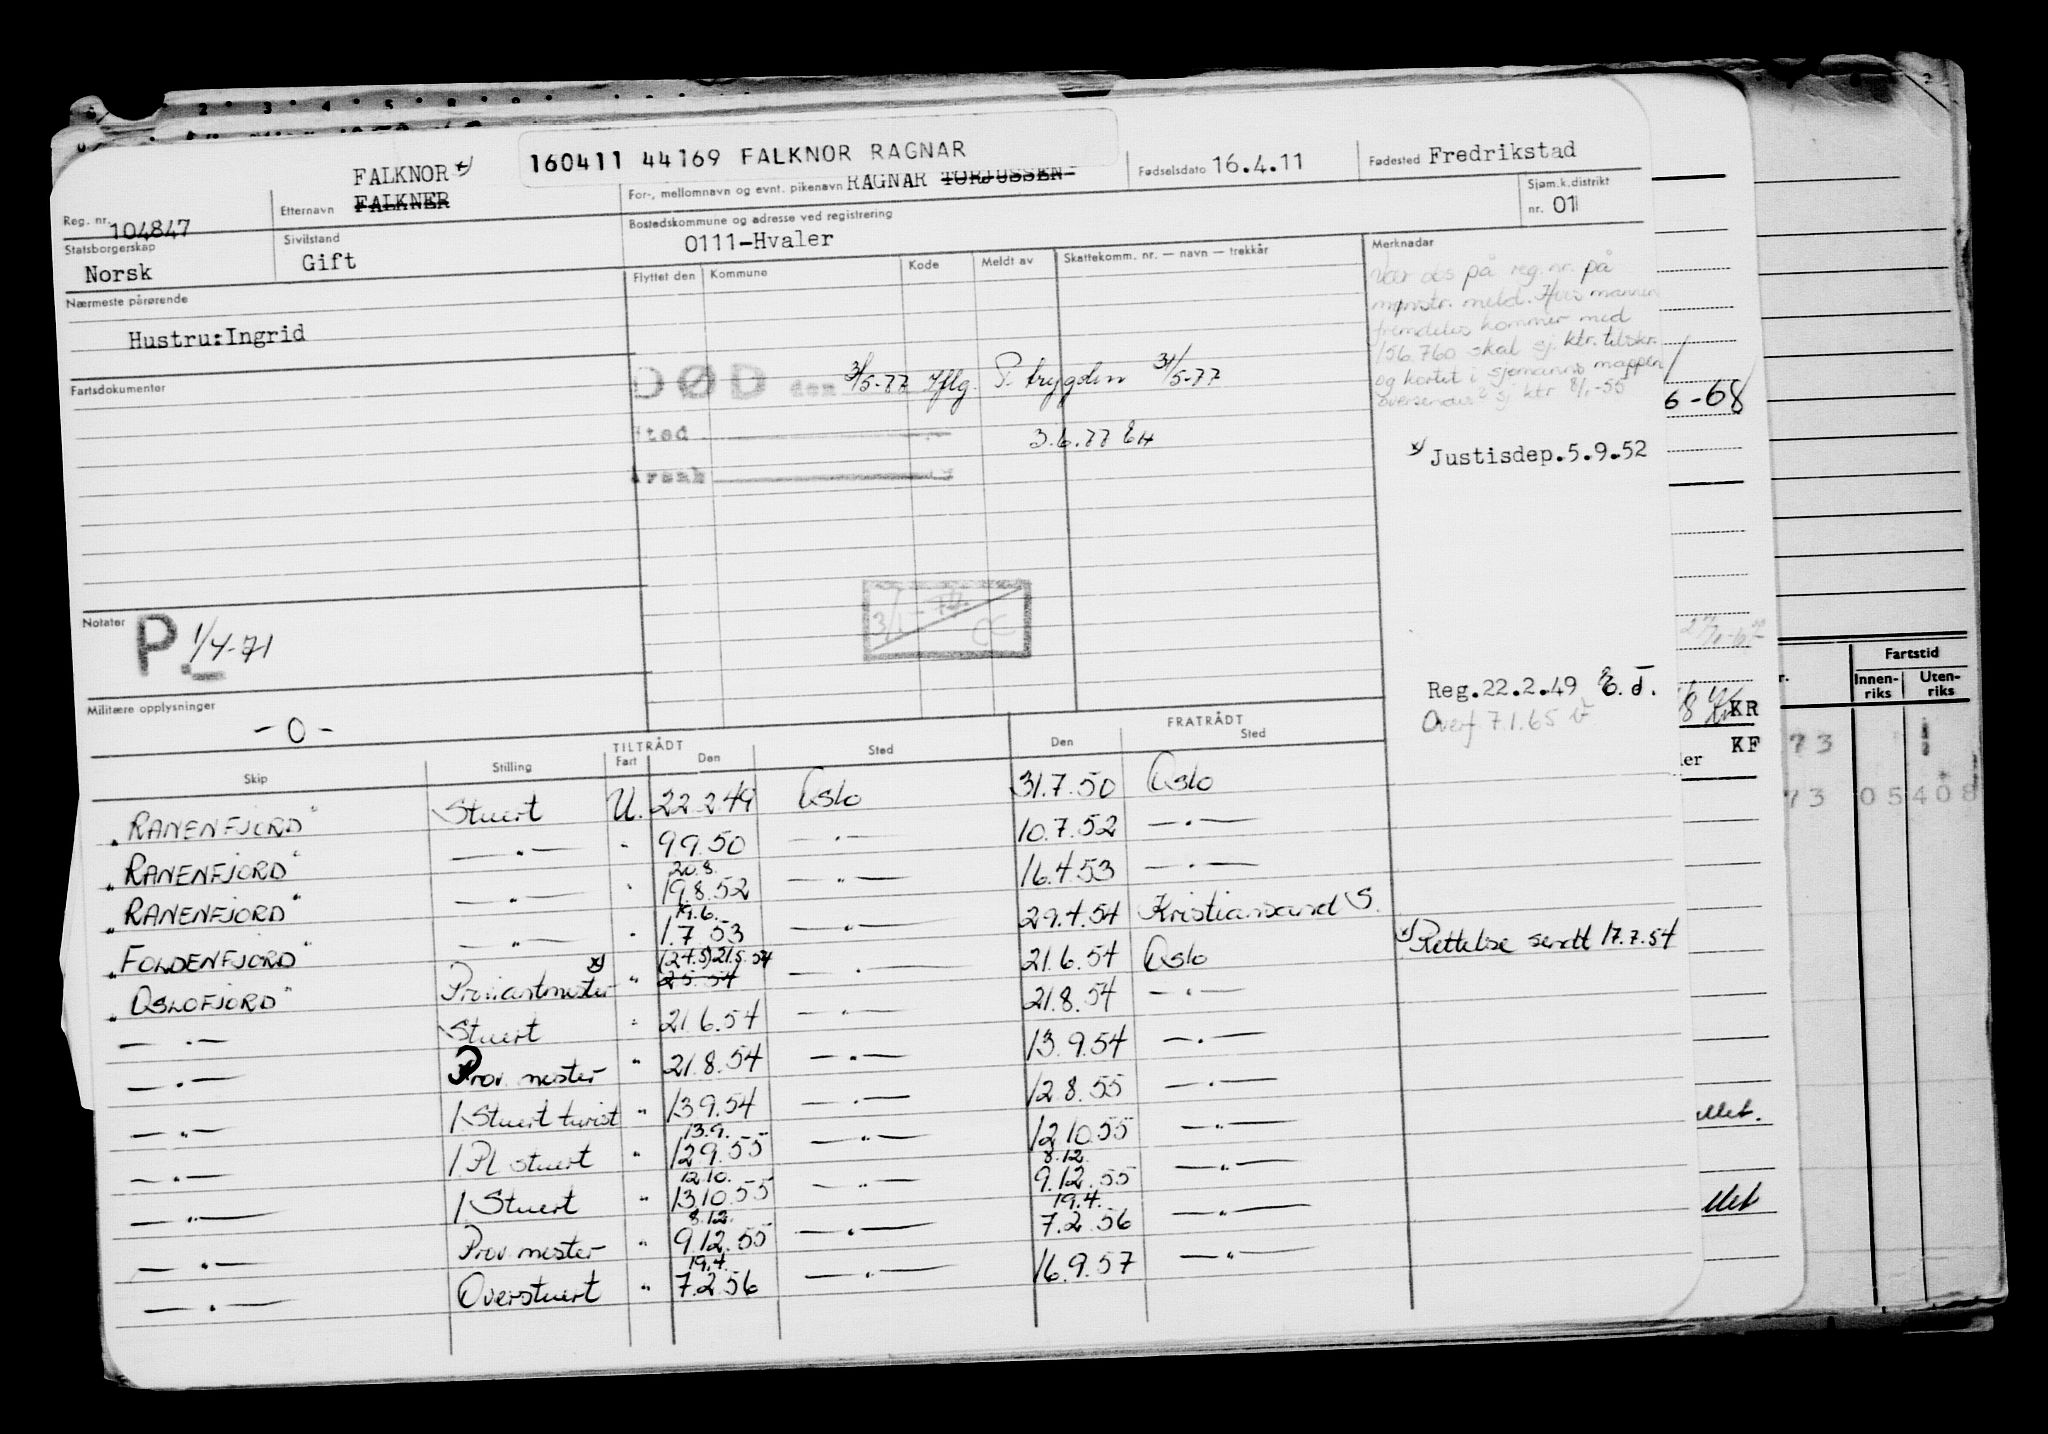 160411 44169 FALKNOR RAGNAR
Reg. nr. 104847
Etternavn FALKNOR x)
FALKNER
For-, mellomnavn og evnt. pikenavn RAGNAR TORJUSSEN
Fødselsdato 16.4.11
Fødested Fredrikstad
Statsborgerskap Norsk
Sivilstand Gift
Bostedskommune og adresse ved registrering
0111-Hvaler
Sjøm.k.distrikt
nr. 01
Nærmeste pårørende
Hustru:Ingrid
Flyttet den Kommune Kode Meldt av Skattekomm. nr. — navn — trekkår
Merknadar
Vær obs på reg. nr. på
mønstr. meld. Hvis mannen
fremdeles kommer med
156.760 skal sj. ktr. tilskr.
og kortet i sjømanns mappen
oversendes sj ktr 8/1-55
Fartsdokumenter
DØD den 31/5-77 Iflg. P. trygden 31/5-77
Sted 3.6.77 EH
Årsak
x) Justisdep.5.9.52
6-68
Notater P. 1/4-71
3/1-74
Militære opplysninger
- 0 -
Reg.22.2.49 E.J.
Overf 7.1.65
KR
KF
Fartstid
Innen-riks Uten-riks
73
73 05408
TILTRÅDT FRATRÅDT
Skip Stilling Fart Den Sted Den Sted
"RANENFJORD" Stuert U. 22.2.49 Oslo 31.7.50 Oslo
"RANENFJORD" —"— " 9.9.50 —"— 10.7.52 —"—
"RANENFJORD" —"— " 20.8. 19.8.52 —"— 16.4.53 —"—
"FOLDENFJORD" —"— " 19.6. 1.7.53 —"— 29.4.54 Kristiansand S.
"OSLOFJORD" Proviantmester x) " (24.5) 21.5.54 2.5.54 —"— 21.6.54 Oslo
x) Rettelse sendt 17.7.54
—"— Stuert " 21.6.54 —"— 21.8.54 —"—
—"— Prov. mester " 21.8.54 —"— 13.9.54 —"—
—"— 1 Stuert turist " 13.9.54 —"— 12.8.55 —"—
—"— 1 Pl stuert " 13.9. 12.9.55 —"— 12.10.55 —"—
—"— 1 Stuert " 12.10. 13.10.55 —"— 8.12. 9.12.55 —"—
—"— Prov. mester " 8.12. 9.12.55 —"— 19.4. 7.2.56 —"—
—"— Overstuert " 19.4. 7.2.56 —"— 16.9.57 —"—